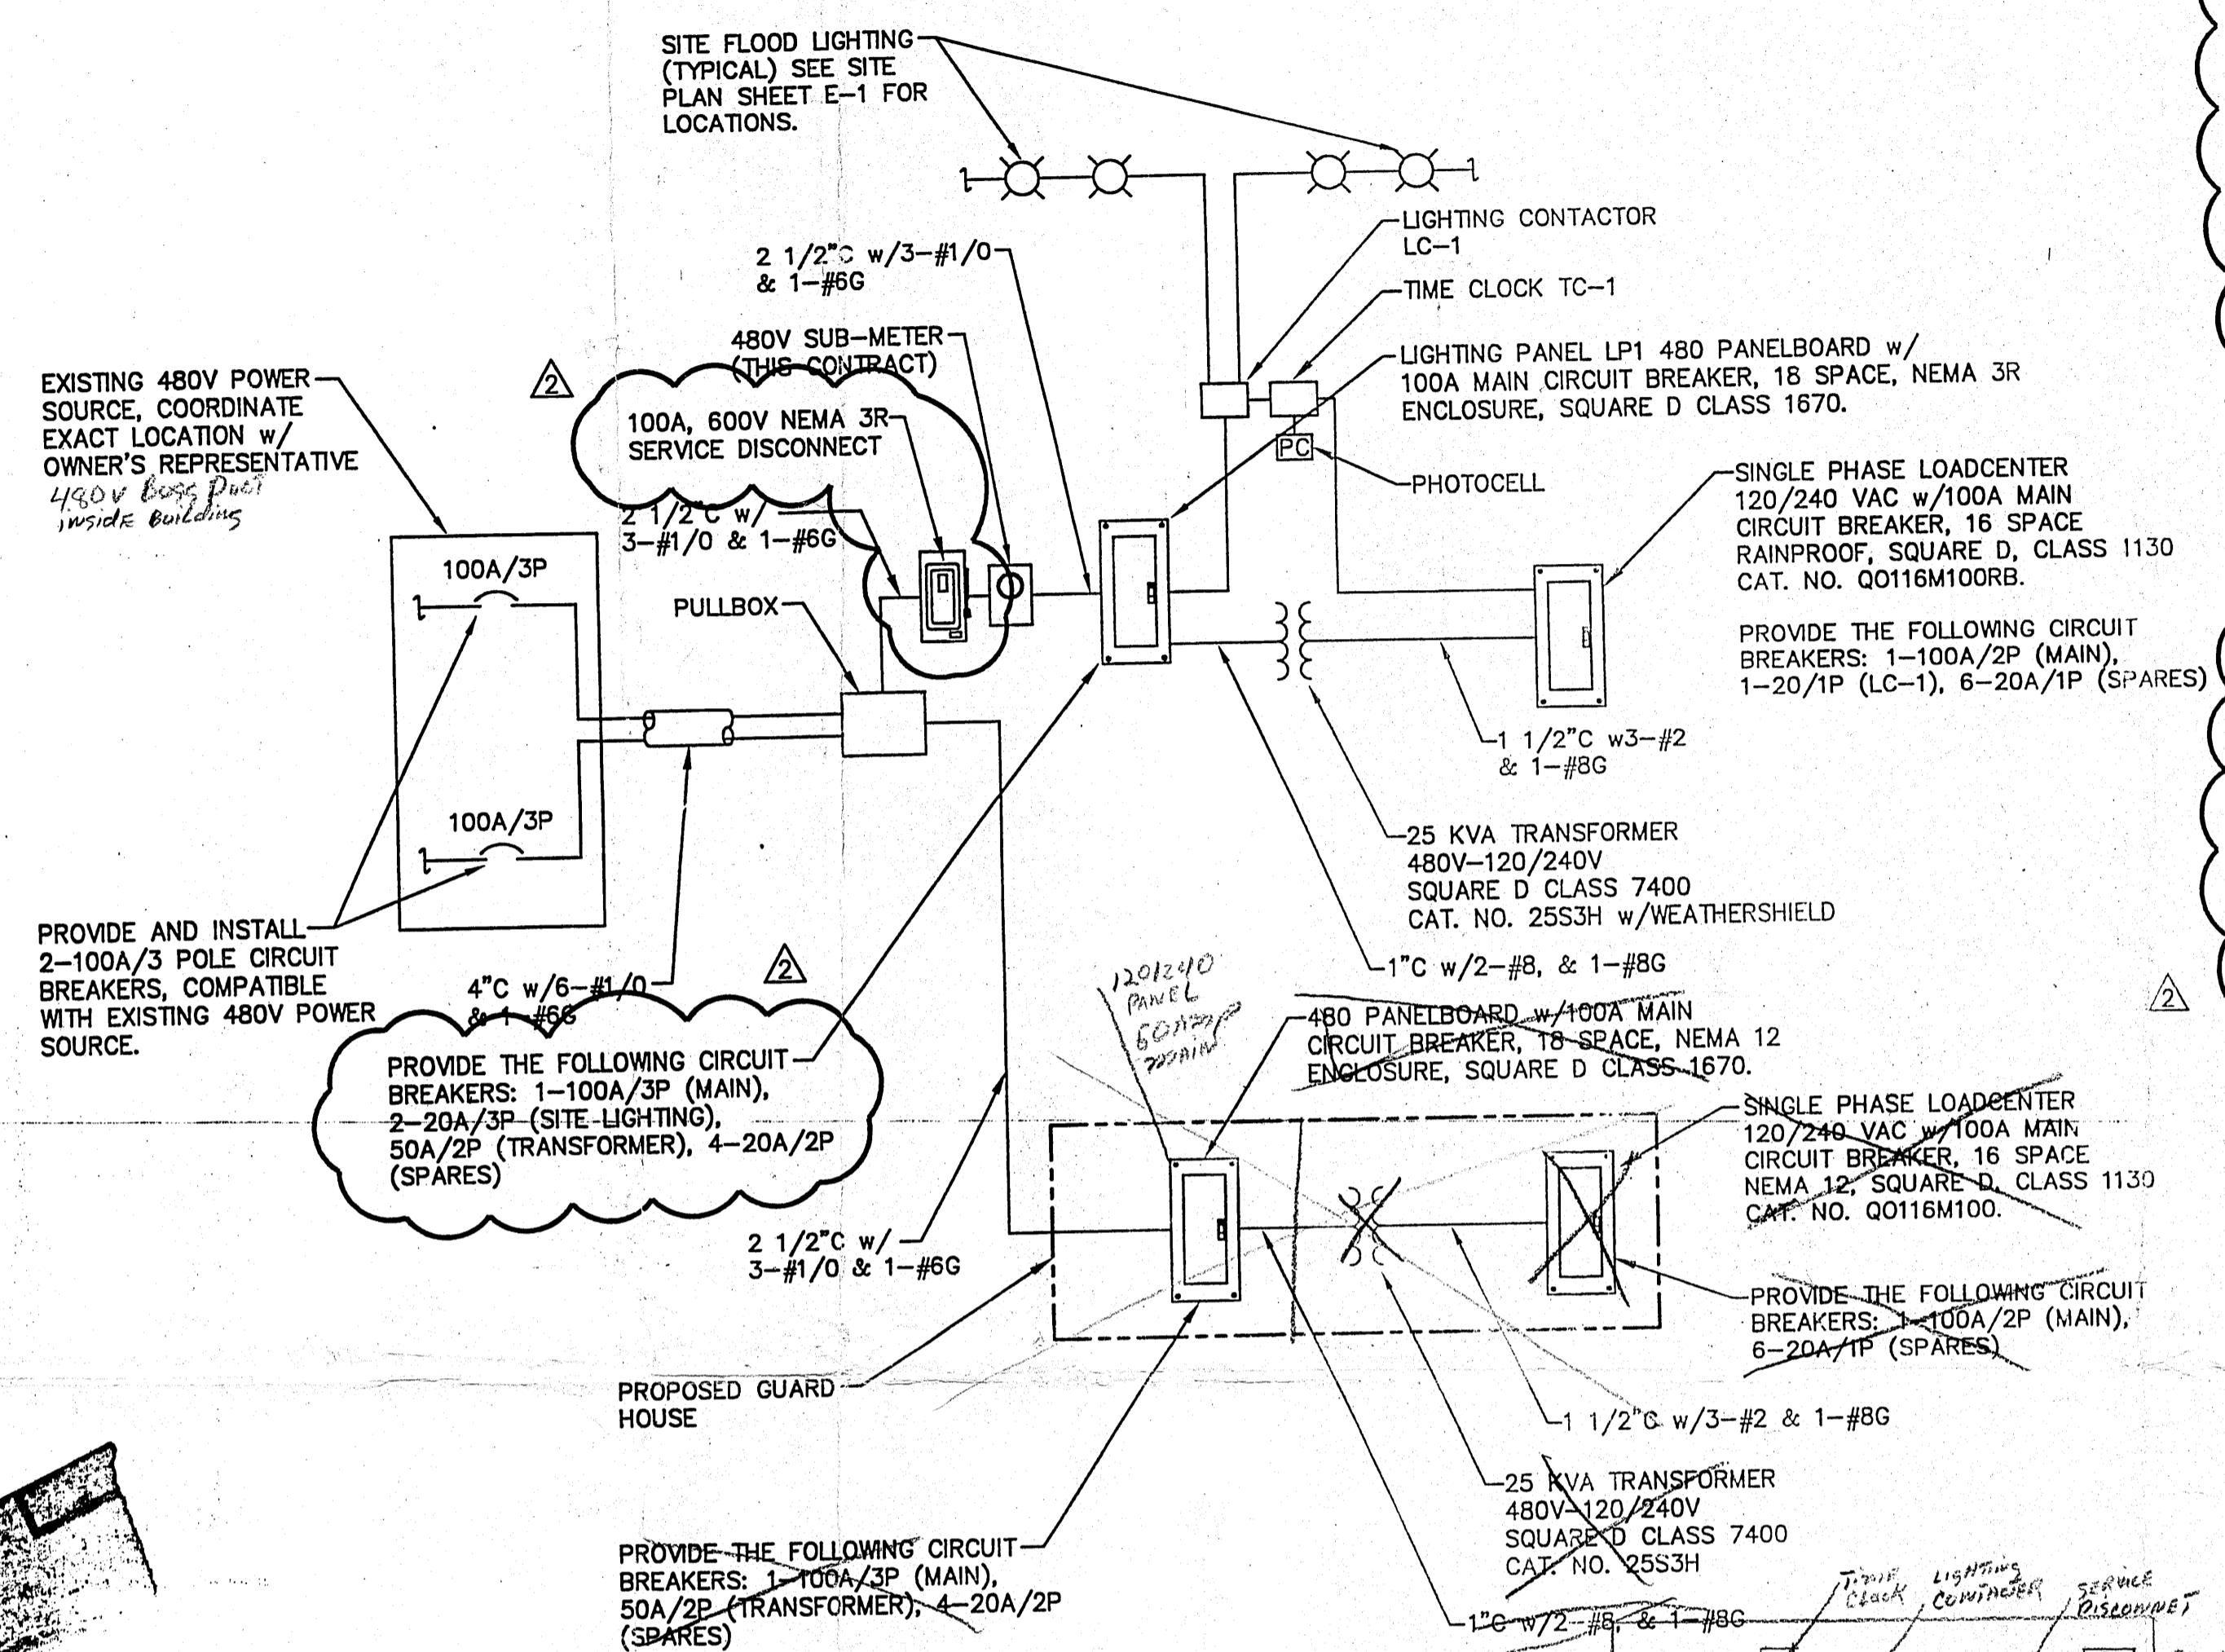 SITE FLOOD LIGHTING
(TYPICAL) SEE SITE
PLAN SHEET E-1 FOR
LOCATIONS.
2 1/2"C w/3-#1/0
& 1-#6G
LIGHTING CONTACTOR
LC-1
TIME CLOCK TC-1
480V SUB-METER
(THIS CONTRACT)
LIGHTING PANEL LP1 480 PANELBOARD w/
100A MAIN CIRCUIT BREAKER, 18 SPACE, NEMA 3R
ENCLOSURE, SQUARE D CLASS 1670.
EXISTING 480V POWER
SOURCE, COORDINATE
EXACT LOCATION w/
OWNER'S REPRESENTATIVE
480V Buss Duct
inside Building
2
100A, 600V NEMA 3R
SERVICE DISCONNECT
PC
PHOTOCELL
SINGLE PHASE LOADCENTER
120/240 VAC w/100A MAIN
CIRCUIT BREAKER, 16 SPACE
RAINPROOF, SQUARE D, CLASS 1130
CAT. NO. QO116M100RB.
2 1/2"C w/
3-#1/0 & 1-#6G
100A/3P
PULLBOX
PROVIDE THE FOLLOWING CIRCUIT
BREAKERS: 1-100A/2P (MAIN),
1-20/1P (LC-1), 6-20A/1P (SPARES)
1 1/2"C w3-#2
& 1-#8G
100A/3P
25 KVA TRANSFORMER
480V-120/240V
SQUARE D CLASS 7400
CAT. NO. 25S3H w/WEATHERSHIELD
PROVIDE AND INSTALL
2-100A/3 POLE CIRCUIT
BREAKERS, COMPATIBLE
WITH EXISTING 480V POWER
SOURCE.
4"C w/6-#1/0
& 1-#6G
2
1"C w/2-#8, & 1-#8G
120/240
PANEL
60Amp
main
2
480 PANELBOARD w/100A MAIN
CIRCUIT BREAKER, 18 SPACE, NEMA 12
ENCLOSURE, SQUARE D CLASS 1670.
PROVIDE THE FOLLOWING CIRCUIT
BREAKERS: 1-100A/3P (MAIN),
2-20A/3P (SITE LIGHTING),
50A/2P (TRANSFORMER), 4-20A/2P
(SPARES)
SINGLE PHASE LOADCENTER
120/240 VAC w/100A MAIN
CIRCUIT BREAKER, 16 SPACE
NEMA 12, SQUARE D, CLASS 1130
CAT. NO. QO116M100.
2 1/2"C w/
3-#1/0 & 1-#6G
PROVIDE THE FOLLOWING CIRCUIT
BREAKERS: 1-100A/2P (MAIN),
6-20A/1P (SPARES)
PROPOSED GUARD
HOUSE
1 1/2"C w/3-#2 & 1-#8G
25 KVA TRANSFORMER
480V-120/240V
SQUARE D CLASS 7400
CAT. NO. 25S3H
PROVIDE THE FOLLOWING CIRCUIT
BREAKERS: 1-100A/3P (MAIN),
50A/2P (TRANSFORMER), 4-20A/2P
(SPARES)
1"C w/2-#8, & 1-#8G
Time
Clock
LIGHTING
CONTACTER
SERVICE
DISCONNET